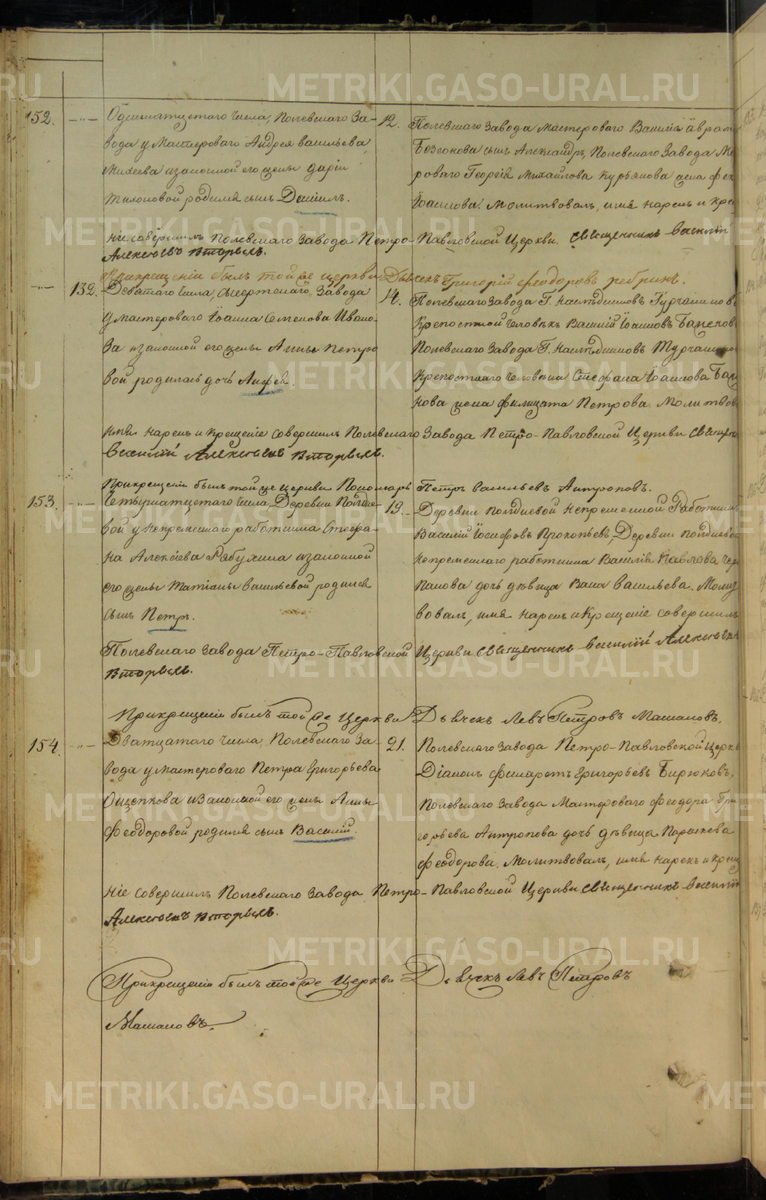 152. Одиннатцетого числа, Полевшаго За-
вода у Мастероваго Андрея васильева
Михеева изаконной его жены дарiи
Тихоновой родился сынъ Данiилъ.
12. Полевшаго завода Мастероваго Василiя
сынъ Александръ, Полевшаго завода Ма
роваго Георгiя Михайлова Курьянова жена
Iоаннова. Молитвовалъ, имя нарекъ и кре
нiе совершилъ Полевшаго завода Петро-Павловской Церкви. священникъ Василiй
Алексѣевъ вторыхъ.
Прикрещенiи былъ той же церкви Дьячекъ Григорiй феодоровъ
132. Девятаго числа, сысертскаго завода
у мастероваго Iоанна Семенова Ивано-
ва изаконной его жены Анны Петро
вой родилась дочь
14. Полевшаго завода Г. Наслѣдниковъ Турчаниновъ
Крепостной человѣкъ Василiй Iоанновъ
Полевшаго завода Г. Наслѣдниковъ Турчанинов
крепостнаго человека Стефана Iоаннова
жена Петрова. Молитво
имя нарекъ и крещенiе совершилъ Полевшаго завода Петро-Павловской Церкви Священн
Василiй Алексѣевъ вторыхъ.
Прикрещенiи былъ той же церкви Пономарь Петръ васильевъ Антроповъ.
153. Четырнатцетого числа, Деревни Полдне
вой у непременнаго работника Стефа-
на Алексѣева Рябухина изаконной
его жены Татiаны васильевой родился
сынъ Петръ.
19. Деревни Полдневой Непременной Работникъ
Василiй Iосифовъ Прокопьевъ, Деревни полднево
непременнаго работника Василiя Павлова
панова дочь дѣвица васильева. Молит
вовалъ, имя нарекъ и крещенiе совершилъ
Полевшаго завода Петро-Павловской Церкви священникъ василiй Алексѣевъ
вторыхъ.
Прикрещенiи былъ той же Церкви Дьячекъ Левъ Петровъ
154. Дватцатаго числа, Полевшаго За-
вода у Мастероваго Петра Григорьева
Ощепкова изаконной его жены Анны
феодоровой родился сынъ Василiй.
21. Полевшаго завода Петро-Павловской Церкви
Дiаконъ филаретъ Григорьевъ Бирюковъ,
Полевшаго завода Мастероваго феодора Гри
горьева Антропова дочь дѣвица
феодорова. Молитвовалъ, имя нарекъ и креще
нiе совершилъ Полевшаго завода Петро-Павловской Церкви священникъ василiй
Алексѣевъ вторыхъ.
Прикрещенiи былъ той же Церкви Дьячекъ Левъ Петровъ
METRIKI.GASO-URAL.RU